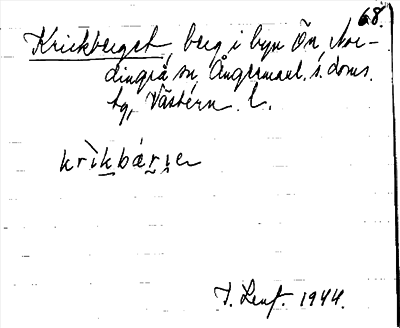 68.
Krickberget, berg i byn Ön, Nor-
dingrå sn, Ångermanl. s. doms.
tg, Västern. l.
krìkbær̥i̥e
T. Lenf. 1944.